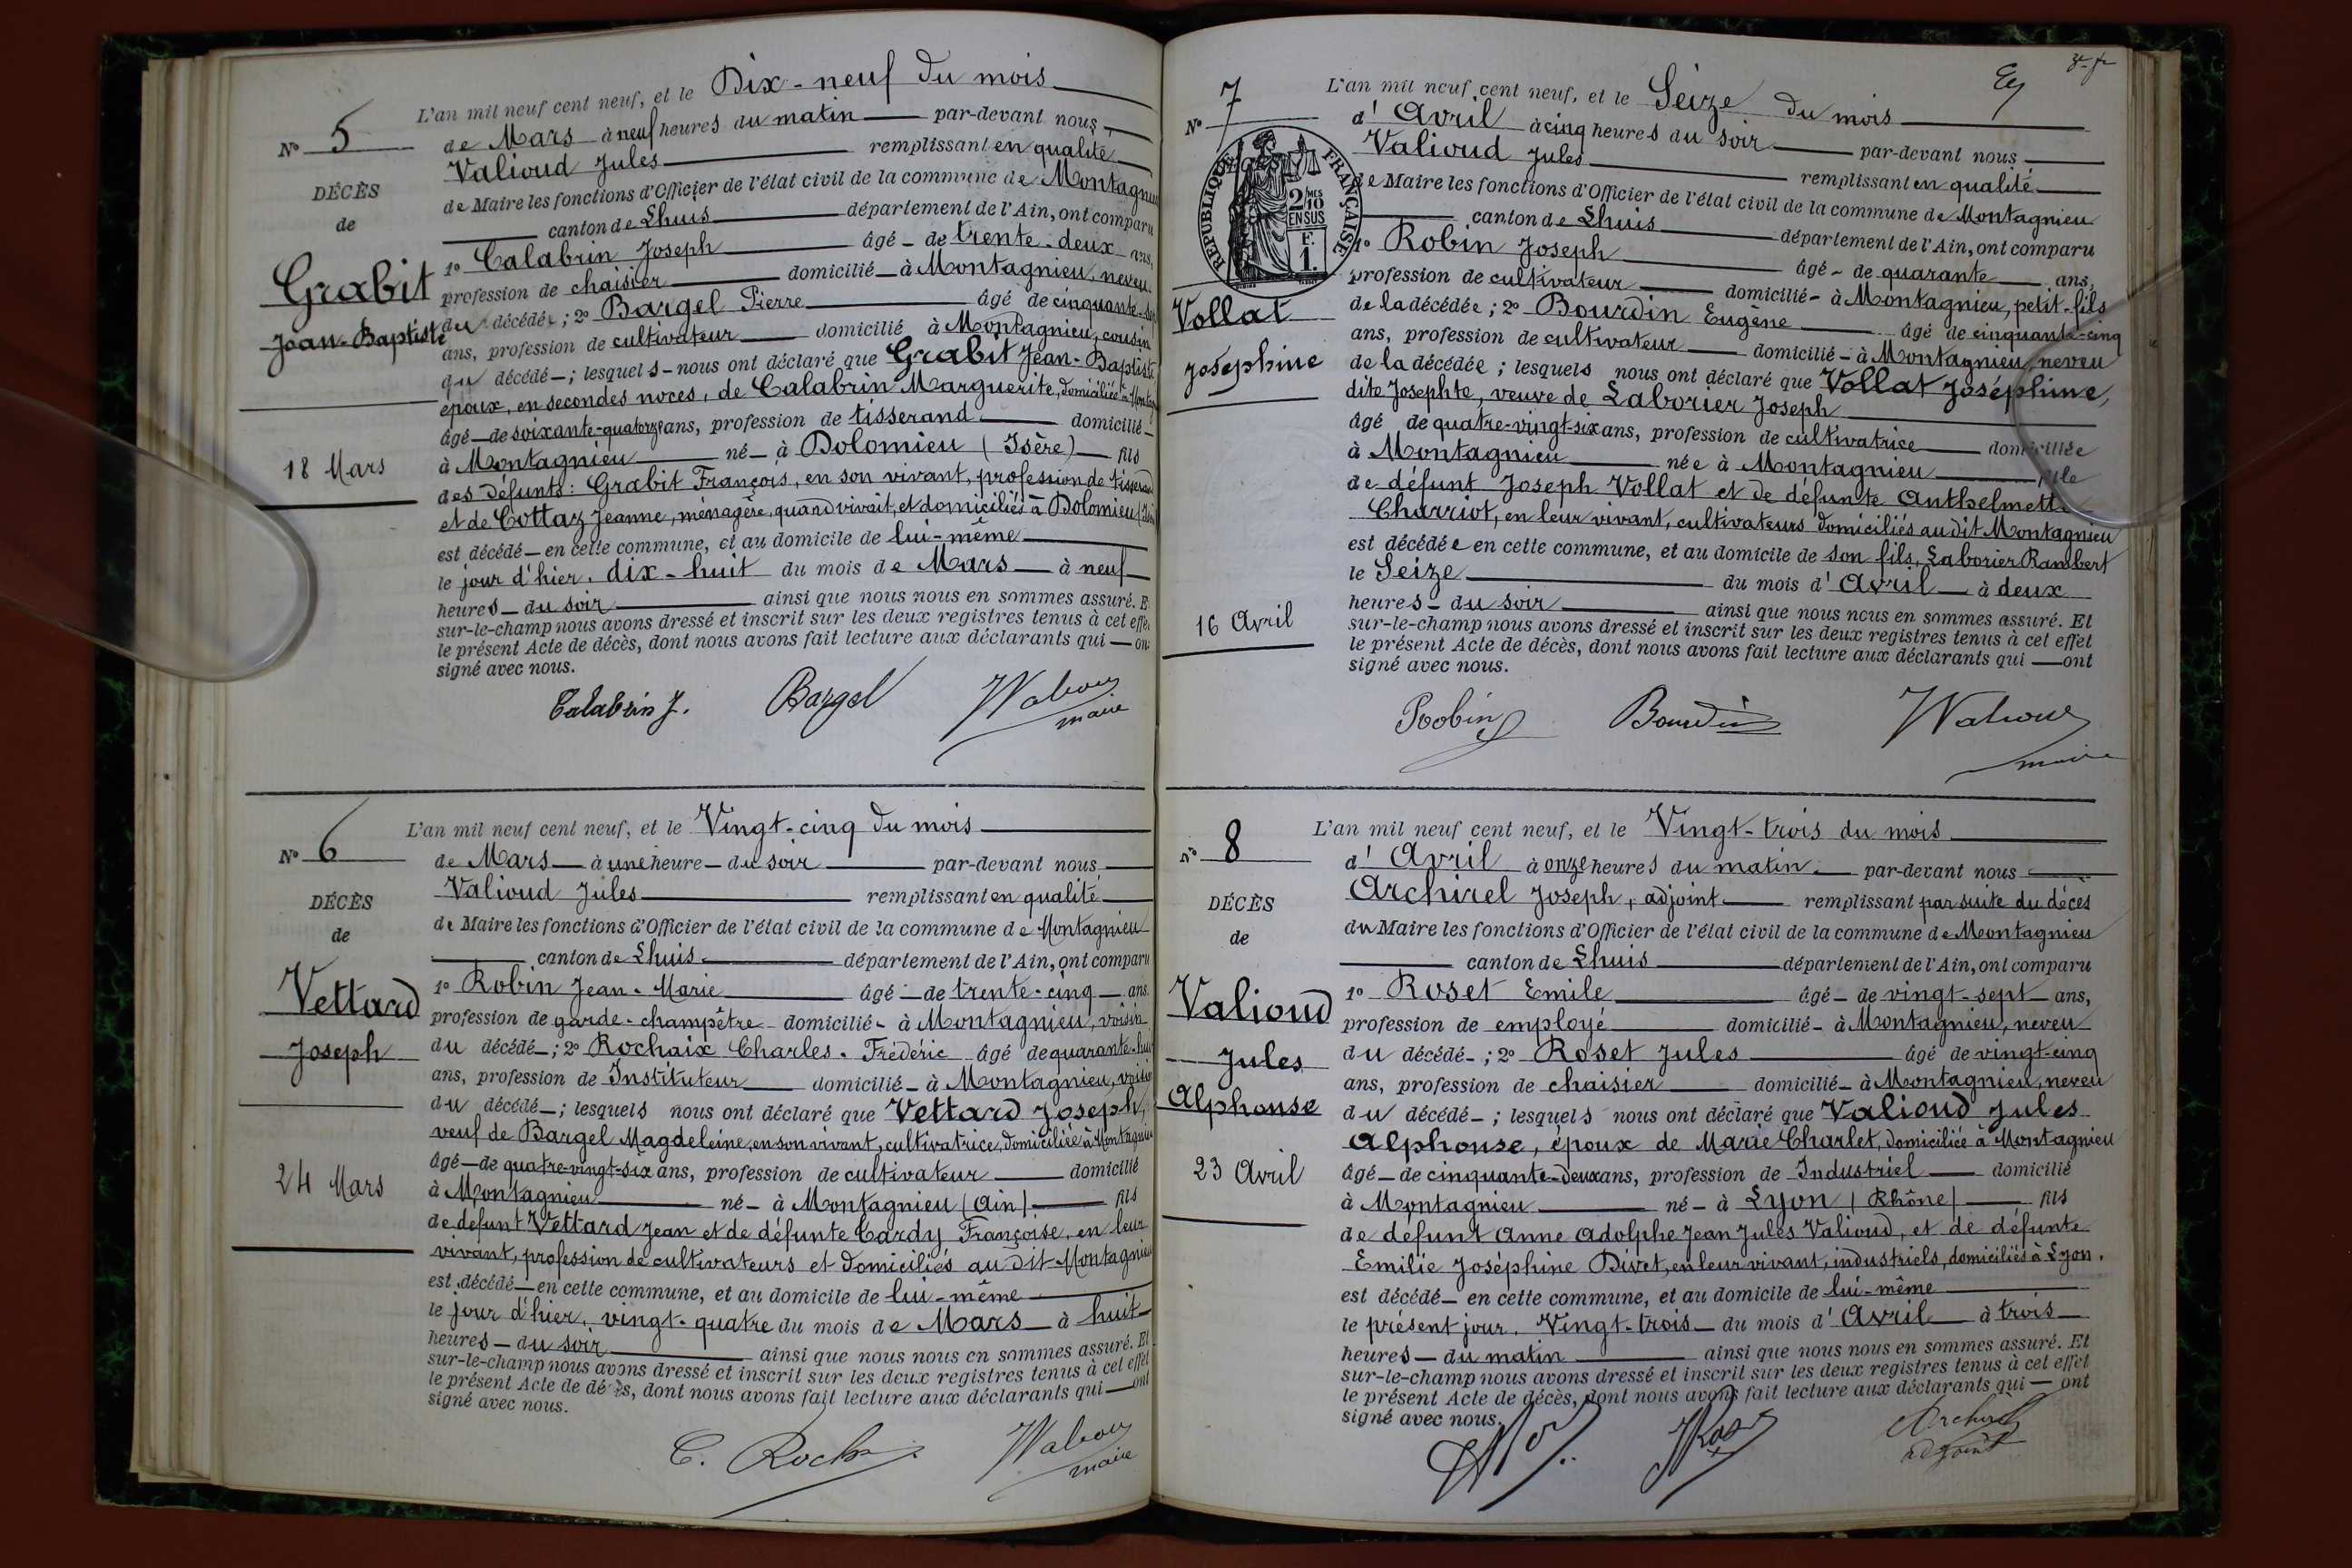 L'an mil neuf cent neuf, et le Dix-neuf du mois
N° 5
de Mars à neuf heures du matin par-devant nous
Valioud Jules remplissant en qualité
DÉCÈS
de Maire les fonctions d'Officier de l'état civil de la commune de Montagnieu
de
canton de Lhuis département de l'Ain, ont comparu
1° Calabrin Joseph âgé de trente-deux ans,
Grabit
profession de chaisier domicilié à Montagnieu, neveu
du décédé ; 2° Bargel Pierre âgé de cinquante-
Jean-Baptiste
ans, profession de cultivateur domicilié à Montagnieu, cousin
du décédé ; lesquels nous ont déclaré que Grabit Jean-Baptiste
époux, en secondes noces, de Calabrin Marguerite, domiciliée à
âgé de soixante-quatorze ans, profession de tisserand domicilié
18 Mars
à Montagnieu né à Dolomieu (Isère) fils
des défunts : Grabit François, en son vivant, profession de tisserand
et de Cottaz Jeanne, ménagère, quand vivait, et domiciliés à Dolomieu
est décédé en cette commune, et au domicile de lui-même
le jour d'hier, dix-huit du mois de Mars à neuf
heures du soir ainsi que nous nous en sommes assuré. E
sur-le-champ nous avons dressé et inscrit sur les deux registres tenus à cet effe
le présent Acte de décès, dont nous avons fait lecture aux déclarants qui on
signé avec nous.
Calabrin J. Bargel
maire
L'an mil neuf cent neuf, et le Vingt-cinq du mois
N° 6
de Mars à une heure du soir par-devant nous
Valioud Jules remplissant en qualité
DÉCÈS
de Maire les fonctions d'Officier de l'état civil de la commune de Montagnieu
de
canton de Lhuis département de l'Ain, ont comparu
Vettard
1° Robin Jean-Marie âgé de trente-cinq ans.
profession de garde-champêtre domicilié à Montagnieu, voisin
Joseph
du décédé ; 2° Rochaix Charles-Frédéric âgé de quarante-huit
ans, profession de Instituteur domicilié à Montagnieu, voisin
du décédé ; lesquels nous ont déclaré que Vettard Joseph,
veuf de Bargel Magdeleine, en son vivant, cultivatrice, domiciliée à Montagnieu
âgé de quatre-vingt-six ans, profession de cultivateur domicilié
24 Mars
à Montagnieu né à Montagnieu (Ain) fils
de défunt Vettard Jean et de défunte Cardy Françoise, en leur
vivant, profession de cultivateurs et domiciliés au dit Montagnieu
est décédé en cette commune, et au domicile de lui-même
le jour d'hier, vingt-quatre du mois de Mars à huit
heures du soir ainsi que nous nous en sommes assuré. Et
sur-le-champ nous avons dressé et inscrit sur les deux registres tenus à cet effet
le présent Acte de décès, dont nous avons fait lecture aux déclarants qui ont
signé avec nous.
maire
L'an mil neuf cent neuf, et le Seize du mois
N° 7
d'Avril à cinq heures du soir par-devant nous
Valioud Jules remplissant en qualité
RÉPUBLIQUE FRANÇAISE
2/10 MES EN SUS
F. 1.
de Maire les fonctions d'Officier de l'état civil de la commune de Montagnieu
canton de Lhuis département de l'Ain, ont comparu
1° Robin Joseph âgé de quarante ans,
profession de cultivateur domicilié à Montagnieu, petit-fils
Vollat
de la décédée ; 2° Bourdin Eugène âgé de cinquante-cinq
ans, profession de cultivateur domicilié à Montagnieu, neveu
Joséphine
de la décédée ; lesquels nous ont déclaré que Vollat Joséphine,
dite Josephte, veuve de Laborier Joseph
âgé de quatre-vingt-six ans, profession de cultivatrice domiciliée
à Montagnieu née à Montagnieu fille
de défunt Joseph Vollat et de défunte Anthelmette
Charriot, en leur vivant, cultivateurs domiciliés au dit Montagnieu
est décédée en cette commune, et au domicile de son fils, Laborier Rambert
le Seize du mois d'Avril à deux
16 Avril
heures du soir ainsi que nous nous en sommes assuré. Et
sur-le-champ nous avons dressé et inscrit sur les deux registres tenus à cet effet
le présent Acte de décès, dont nous avons fait lecture aux déclarants qui ont
signé avec nous.
Robin Bourdin
maire
L'an mil neuf cent neuf, et le Vingt-trois du mois
N° 8
d'Avril à onze heures du matin par-devant nous
Archirel Joseph, adjoint remplissant par suite du décès
DÉCÈS
du Maire les fonctions d'Officier de l'état civil de la commune de Montagnieu
de
canton de Lhuis département de l'Ain, ont comparu
Valioud
1° Roset Emile âgé de vingt-sept ans,
profession de employé domicilié à Montagnieu, neveu
Jules
du décédé ; 2° Roset Jules âgé de vingt-cinq
Alphonse
ans, profession de chaisier domicilié à Montagnieu, neveu
du décédé ; lesquels nous ont déclaré que Valioud Jules
Alphonse, époux de Marie Charlet, domiciliée à Montagnieu
23 Avril
âgé de cinquante-deux ans, profession de Industriel domicilié
à Montagnieu né à Lyon (Rhône) fils
de défunt Anne Adolphe Jean Jules Valioud, et de défunte
Emilie Joséphine Divet, en leur vivant, industriels, domiciliés à Lyon.
est décédé en cette commune, et au domicile de lui-même
le présent jour. Vingt-trois du mois d'Avril à trois
heures du matin ainsi que nous nous en sommes assuré. Et
sur-le-champ nous avons dressé et inscrit sur les deux registres tenus à cet effet
le présent Acte de décès, dont nous avons fait lecture aux déclarants qui ont
signé avec nous.
Archirel
adjoint